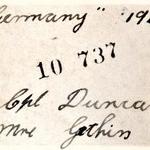 Germany" 19
10 737
Cpl Dunca
Mre Gethin